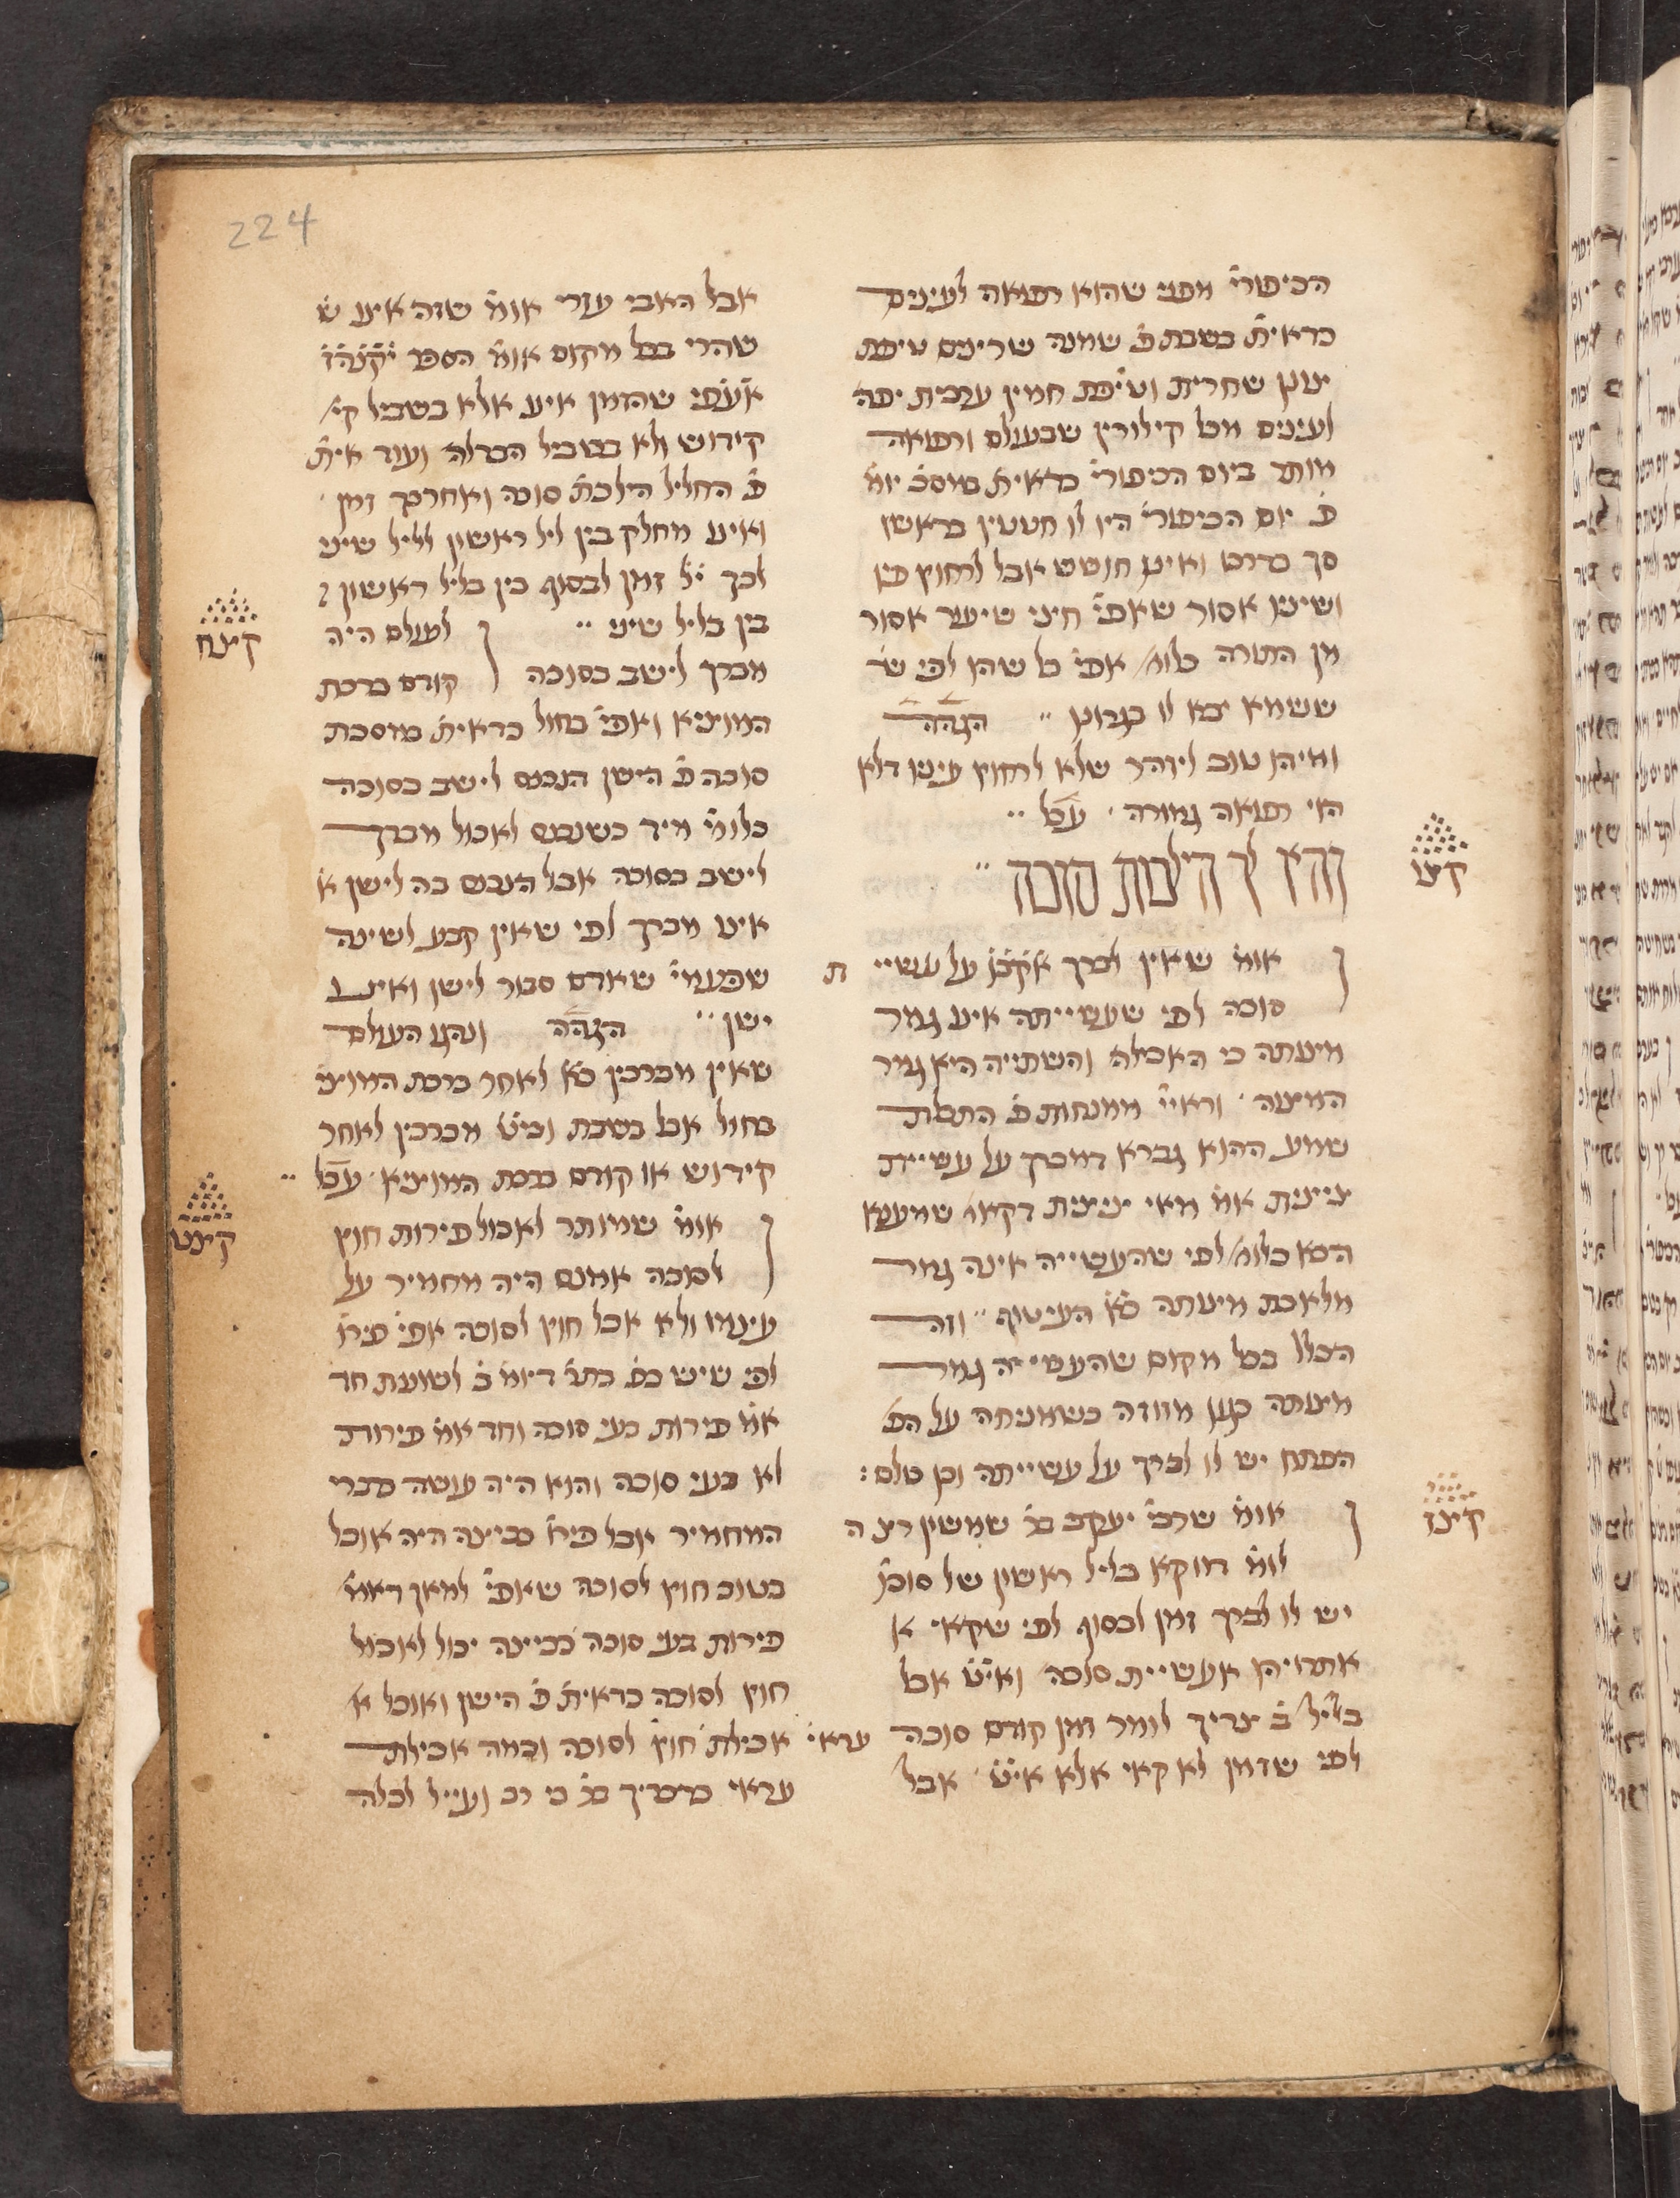 224
הכיפורי' מפני שהוא רפואה לעינים
כדאית' בשבת פ' שמנה שרצים טיפת
צונן שחרית וטיפת חמין ערבית יפה
לעינים מכל קילורין שבעולם ורפואה
מותר ביום הכיפורי' כדאית' במסכ' יומ'
פ' יום הכיפורי' היו לו חטטין בראשו
סך כדרכו ואינו חושש אבל לרחוץ פניו
ושיניו אסור שאפי' חצי שיעור אסור
מן התורה כלומ' אפי' כל שהו לפי ש'
ששמא יבא לו בגרונו הגהה
ומיהו טוב ליזהר שלא לרחוץ עיניו דלא
הוי רפואה גמורה עכל
קצו
והא לך הילכות סוכה
אומ' שאין לברך אקבו על עשיית
סוכה לפי שעשייתה אינו גמר
מצותה כי האכילה והשתייה היא גמר
המצוה וראיי' ממנחות פ' התכלת
שמע ההוא גברא דמברך על עשיית
ציצית אמ' מאי ציצית דקאמ' שמעינא
הכא כלומ' לפי שהעשייה אינה גמר
מלאכת מצותה כא העיטוף וזה
הכלל בכל מקום שהעשייה גמר
מצותה כגון מזוזה כשמניחה על הפ
הפתח יש לו לברך על עשייתה וכן כולם
קצז
אומ' שרבי' יעקב בר שמשון רצה
לומ' דווקא בליל ראשון של סוכו'
יש לו לברך זמן לבסוף לפי שקאי א
אתרויהו אעשיית סוכה ואיט אבל
בליל ב' צריך לומר זמן קודם סוכה
לפי שזמן לא קאי אלא איט אבל
אבל האבי עזרי אומ' שזה אינו ש
שהרי בכל מקום אומ' הספר יקנהז
אעפי שהזמן אינו אלא בשביל קי
קידוש ולא בשביל הבדלה ועוד אית'
פ' החליל הילכת' סוכה ואחרכך זמן
ואינו מחלק בין ליל ראשון לליל שיני
לכך יל זמן לבסוף בין בליל ראשון
בין בליל שיני
קצח
לעולם היה
מברך לישב בסוכה קודם ברכת
המוציא ואפי' בחול כדאית' במסכת
סוכה פ' הישן הנכנס לישב בסוכה
כלומ' מיד כשנכנס לאכול מברך
לישב בסוכה אבל הנכנס בה לישן א
אינו מברך לפי שאין קבע לשינה
שפעמי' שאדם סבור לישן ואינו
ישן הגהה ונהגו העולם
שאין מברכין כא לאחר ברכת המוצי
בחול אבל בשבת וביט מברכין לאחר
קידוש או קודם ברכת המוציא עכל
קצט
אומ' שמותר לאכול פירות חוץ
לסוכה אמנם היה מחמיר על
עצמו ולא אכל חוץ לסוכה אפי' פירו'
לפי שיש בפ' בתר' דיומ' ב' לשונות חד
אמ' פירות בעי סוכה וחד אמ' פירות
לא בעי סוכה והוא היה עושה כדברי
המחמיר אבל פירו' כביצה היה אוכל
בטוב חוץ לסוכה שאפי' למאן דאמ'
פירות בעי סוכה כביצה יכול לאכול
חוץ לסוכה כדאית' פ' הישן ואוכל א
אכילת עראי חוץ לסוכה וכמה אכילת
עראי כדטריך בר בי רב ועייל לכלה